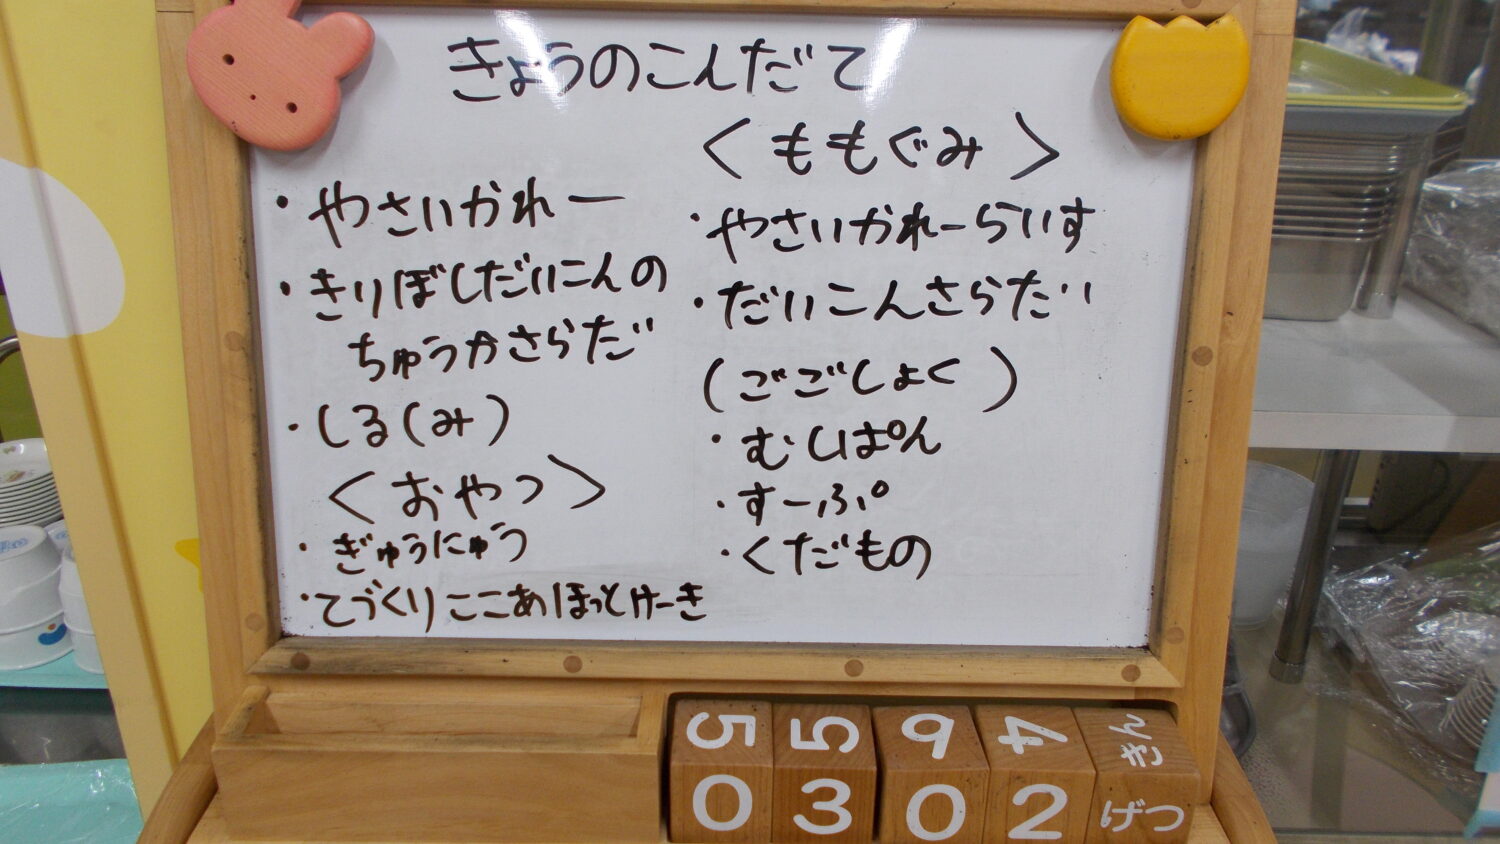 きょうのこんだて
・やさいかれー
・きりぼしだいこんの
ちゅうかさらだ
・しる(み)
〈おやつ〉
・ぎゅうにゅう
・てづくりここあほっとけーき
〈ももぐみ〉
・やさいかれーらいす
・だいこんさらだ
(ごごしょく)
・むしぱん
・すーぷ
・くだもの
5 5 9 4 きん
0 3 0 2 げつ